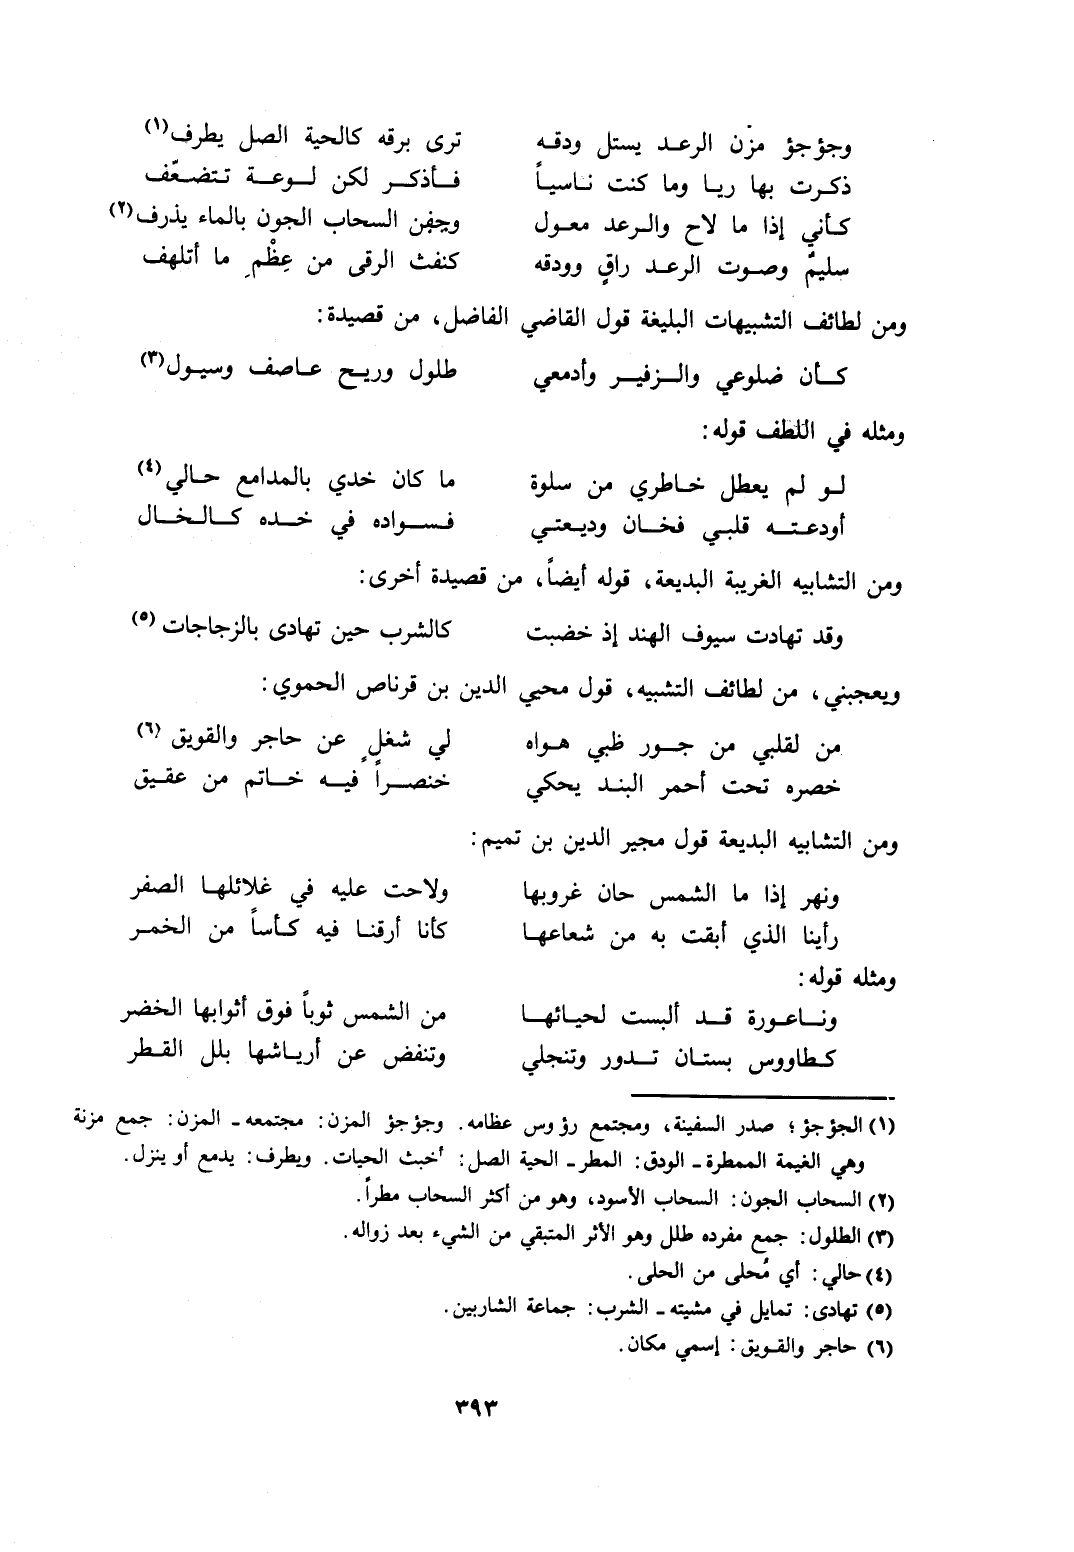 وجؤجؤ مزن الرعد يستل ودقه ترى برقه كالحية الصل يطرف(١)
ذكرت بها ريا وما كنت ناسياً فأذكر لكن لوعة تتضعّف
كأني إذا ما لاح والرعد معول وجفن السحاب الجون بالماء يذرف(٢)
سليمٌ وصوت الرعد راقٍ وودقه كنفث الرقى من عِظْمِ ما أتلهف
ومن لطائف التشبيهات البليغة قول القاضي الفاضل، من قصيدة:
كأن ضلوعي والزفير وأدمعي طلول وريح عاصف وسيول(٣)
ومثله في اللطف قوله:
لو لم يعطل خاطري من سلوة ما كان خدي بالمدامع حالي(٤)
أودعته قلبي فخان وديعتي فسواده في خده كالخال
ومن التشابيه الغريبة البديعة، قوله أيضاً، من قصيدة أخرى:
وقد تهادت سيوف الهند إذ خضبت كالشرب حين تهادى بالزجاجات(٥)
ويعجبني، من لطائف التشبيه، قول محيي الدين بن قرناص الحموي:
من لقلبي من جور ظبي هواه لي شغلٍ عن حاجر والقويق(٦)
خصره تحت أحمر البند يحكي خنصراً فيه خاتم من عقيق
ومن التشابيه البديعة قول مجير الدين بن تميم:
ونهر إذا ما الشمس حان غروبها ولاحت عليه في غلائلها الصفر
رأينا الذي أبقت به من شعاعها كأنا أرقنا فيه كأساً من الخمر
ومثله قوله:
وناعورة قد ألبست لحيائها من الشمس ثوباً فوق أثوابها الخضر
كطاووس بستان تدور وتنجلي وتنفض عن أرياشها بلل القطر
(١) الجؤجؤ؛ صدر السفينة، ومجتمع رؤوس عظامه. وجؤجؤ المزن: مجتمعه ـ المزن: جمع مزنة
وهي الغيمة الممطرة ـ الودق: المطر ـ الحية الصل: أخبث الحيات. ويطرف: يدمع أو ينزل.
(٢) السحاب الجون: السحاب الأسود، وهو من أكثر السحاب مطراً.
(٣) الطلول: جمع مفرده طلل وهو الأثر المتبقي من الشيء بعد زواله.
(٤) حالي: أي مُحلى من الحلى.
(٥) تهادى: تمايل في مشيته ـ الشرب: جماعة الشاربين.
(٦) حاجر والقويق: إسمي مكان.
٣٩٣